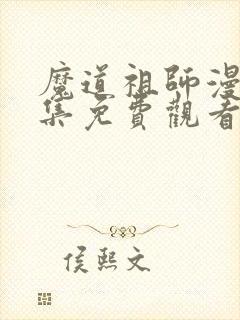 魔道祖師漫
集免費觀看
侯熙文